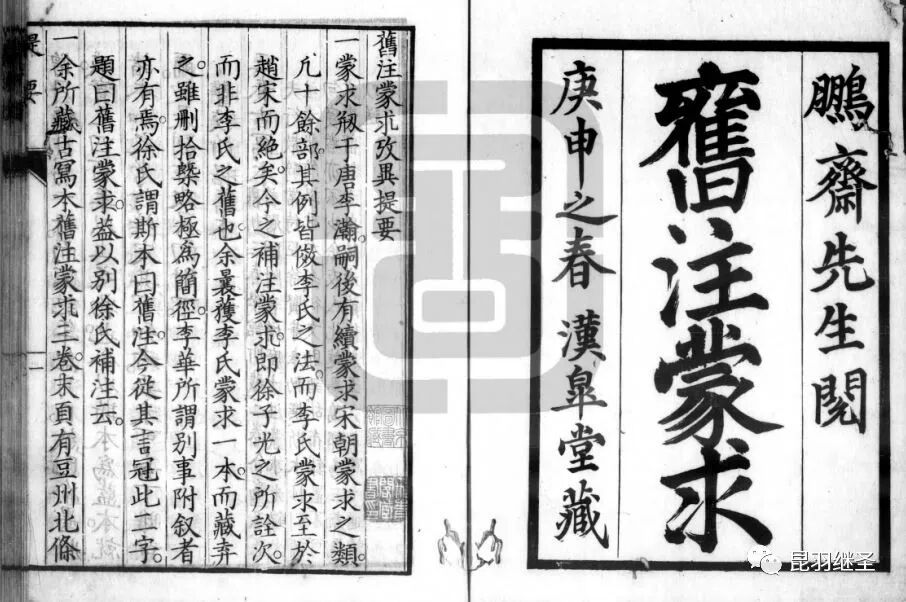 鵬齋先生閱
舊注蒙求
庚申之春 漢皐堂藏
舊注蒙求攷異提要
一蒙求剏于唐李瀚。嗣後有續蒙求宋朝蒙求之類。
凢十餘部。其例皆倣李氏之法。而李氏蒙求至於
趙宋而絕矣。今之補注蒙求。即徐子光之所詮次。
而非李氏之舊也。余曩獲李氏蒙求一本。而藏弆
之。雖删拾槩略極爲簡徑。李華所謂別事附叙者
亦有焉。徐氏謂斯本曰舊注。今從其言冠此二字。
題曰舊注蒙求。葢以別徐氏補注云。
一余所藏古冩本舊注蒙求三卷。末頁有豆州北條
提要
昆羽继圣